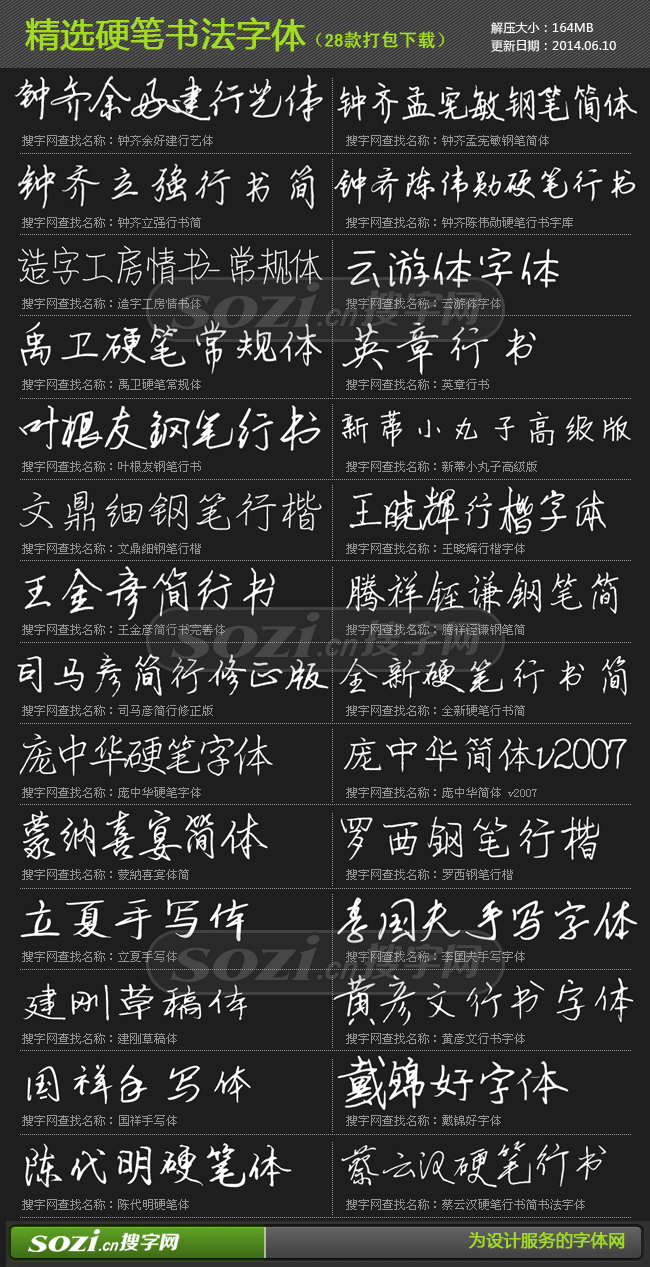 精选硬笔书法字体（28款打包下载）
解压大小：164MB
更新日期：2014.06.10
钟齐余好建行艺体
搜字网查找名称：钟齐余好建行艺体
钟齐孟宪敏钢笔简体
搜字网查找名称：钟齐孟宪敏钢笔简体
钟齐立强行书简
搜字网查找名称：钟齐立强行书简
钟齐陈伟勋硬笔行书
搜字网查找名称：钟齐陈伟勋硬笔行书字库
造字工房情书-常规体
搜字网查找名称：造字工房情书体
云游体字体
搜字网查找名称：云游体字体
sozi.cn搜字网
禹卫硬笔常规体
搜字网查找名称：禹卫硬笔常规体
英章行书
搜字网查找名称：英章行书
叶根友钢笔行书
搜字网查找名称：叶根友钢笔行书
新蒂小丸子高级版
搜字网查找名称：新蒂小丸子高级版
文鼎细钢笔行楷
搜字网查找名称：文鼎细钢笔行楷
王晓辉行楷字体
搜字网查找名称：王晓辉行楷字体
王金彦简行书
搜字网查找名称：王金彦简行书完善体
腾祥铚谦钢笔简
搜字网查找名称：腾祥铚谦钢笔简
sozi.cn搜字网
司马彦简行修正版
搜字网查找名称：司马彦简行修正版
全新硬笔行书简
搜字网查找名称：全新硬笔行书简
庞中华硬笔字体
搜字网查找名称：庞中华硬笔字体
庞中华简体v2007
搜字网查找名称：庞中华简体 v2007
蒙纳喜宴简体
搜字网查找名称：蒙纳喜宴体简
罗西钢笔行楷
搜字网查找名称：罗西钢笔行楷
立夏手写体
搜字网查找名称：立夏手写体
李国夫手写字体
搜字网查找名称：李国夫手写字体
sozi.cn搜字网
建刚草稿体
搜字网查找名称：建刚草稿体
黄彦文行书字体
搜字网查找名称：黄彦文行书字体
国祥手写体
搜字网查找名称：国祥手写体
戴锦好字体
搜字网查找名称：戴锦好字体
陈代明硬笔体
搜字网查找名称：陈代明硬笔体
蔡云汉硬笔行书
搜字网查找名称：蔡云汉硬笔行书简书法字体
sozi.cn搜字网
为设计服务的字体网